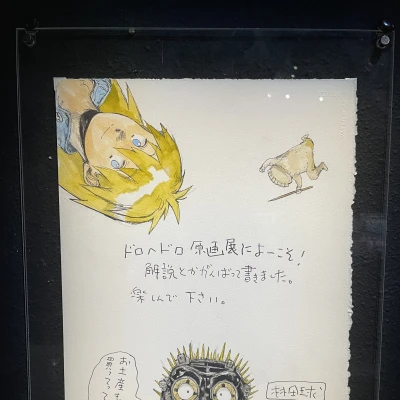 ドロヘドロ原画展によーこそ!
解説とかがんばって書きました。
楽しんで下さい。
お土産も
買ってって
林田球